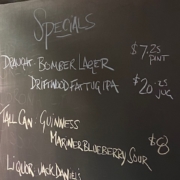 SPECIALS
DRAUGHT- BOMBER LAGER $7.25 PINT
DRIFTWOOD FAT TUG IPA $20.25 JUG
TALL CAN: GUINNESS
MARINER BLUEBERRY SOUR $8
LIQUOR: JACK DANIEL'S